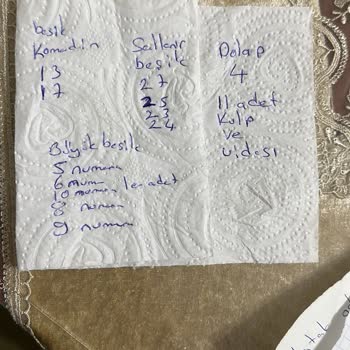 beşik
Komodin
13
17
Sallanır
beşik
27
25
23
24
Dolap
4
11 adet
Kulp
ve
vidası
Büyük beşik
5 numara
6 num
10 numara 1er adet
8 numara
9 numara